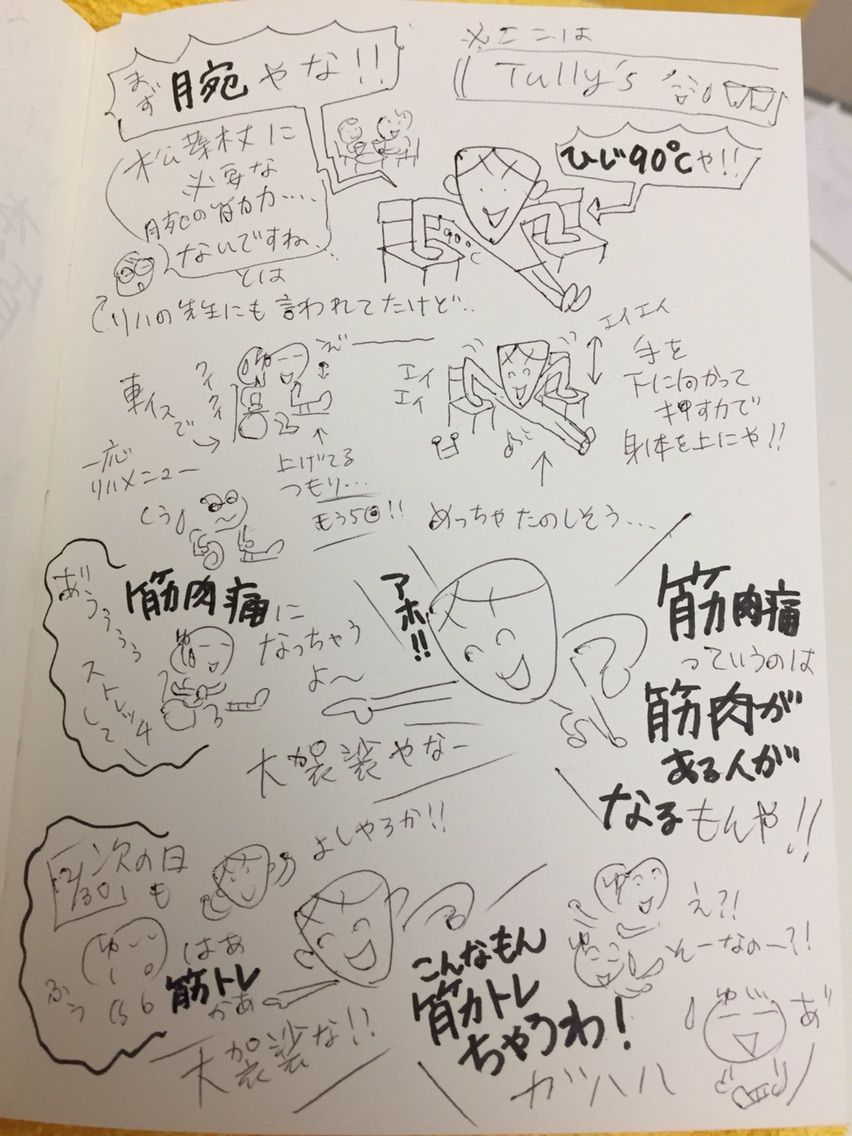 まず腕やな!!
※ここは
Tully's
松葉杖に
必要な
腕の筋力‥‥
ないですね、
とは
リハの先生にも言われてたけど‥
ひじ90℃や!!
90℃
車イスで
クイクイ
一応
リハメニュー
上げてる
つもり…
もう5回!!
エイエイ
エイエイ
手を
下に向かって
押す力で
身体を上にや!!
めっちゃたのしそう…
ストレッチして
筋肉痛に
なっちゃう
よ〜
アホ!!
大袈裟やなー
筋肉痛
っていうのは
筋肉が
ある人が
なるもんや!!
12/30
次の日
も
よしやろか!!
はあ
筋トレ
かあ
ふう
大袈裟な!!
こんなもん
筋力トレ
ちゃうわ!
ガハハ
え?!
そーなの〜?!